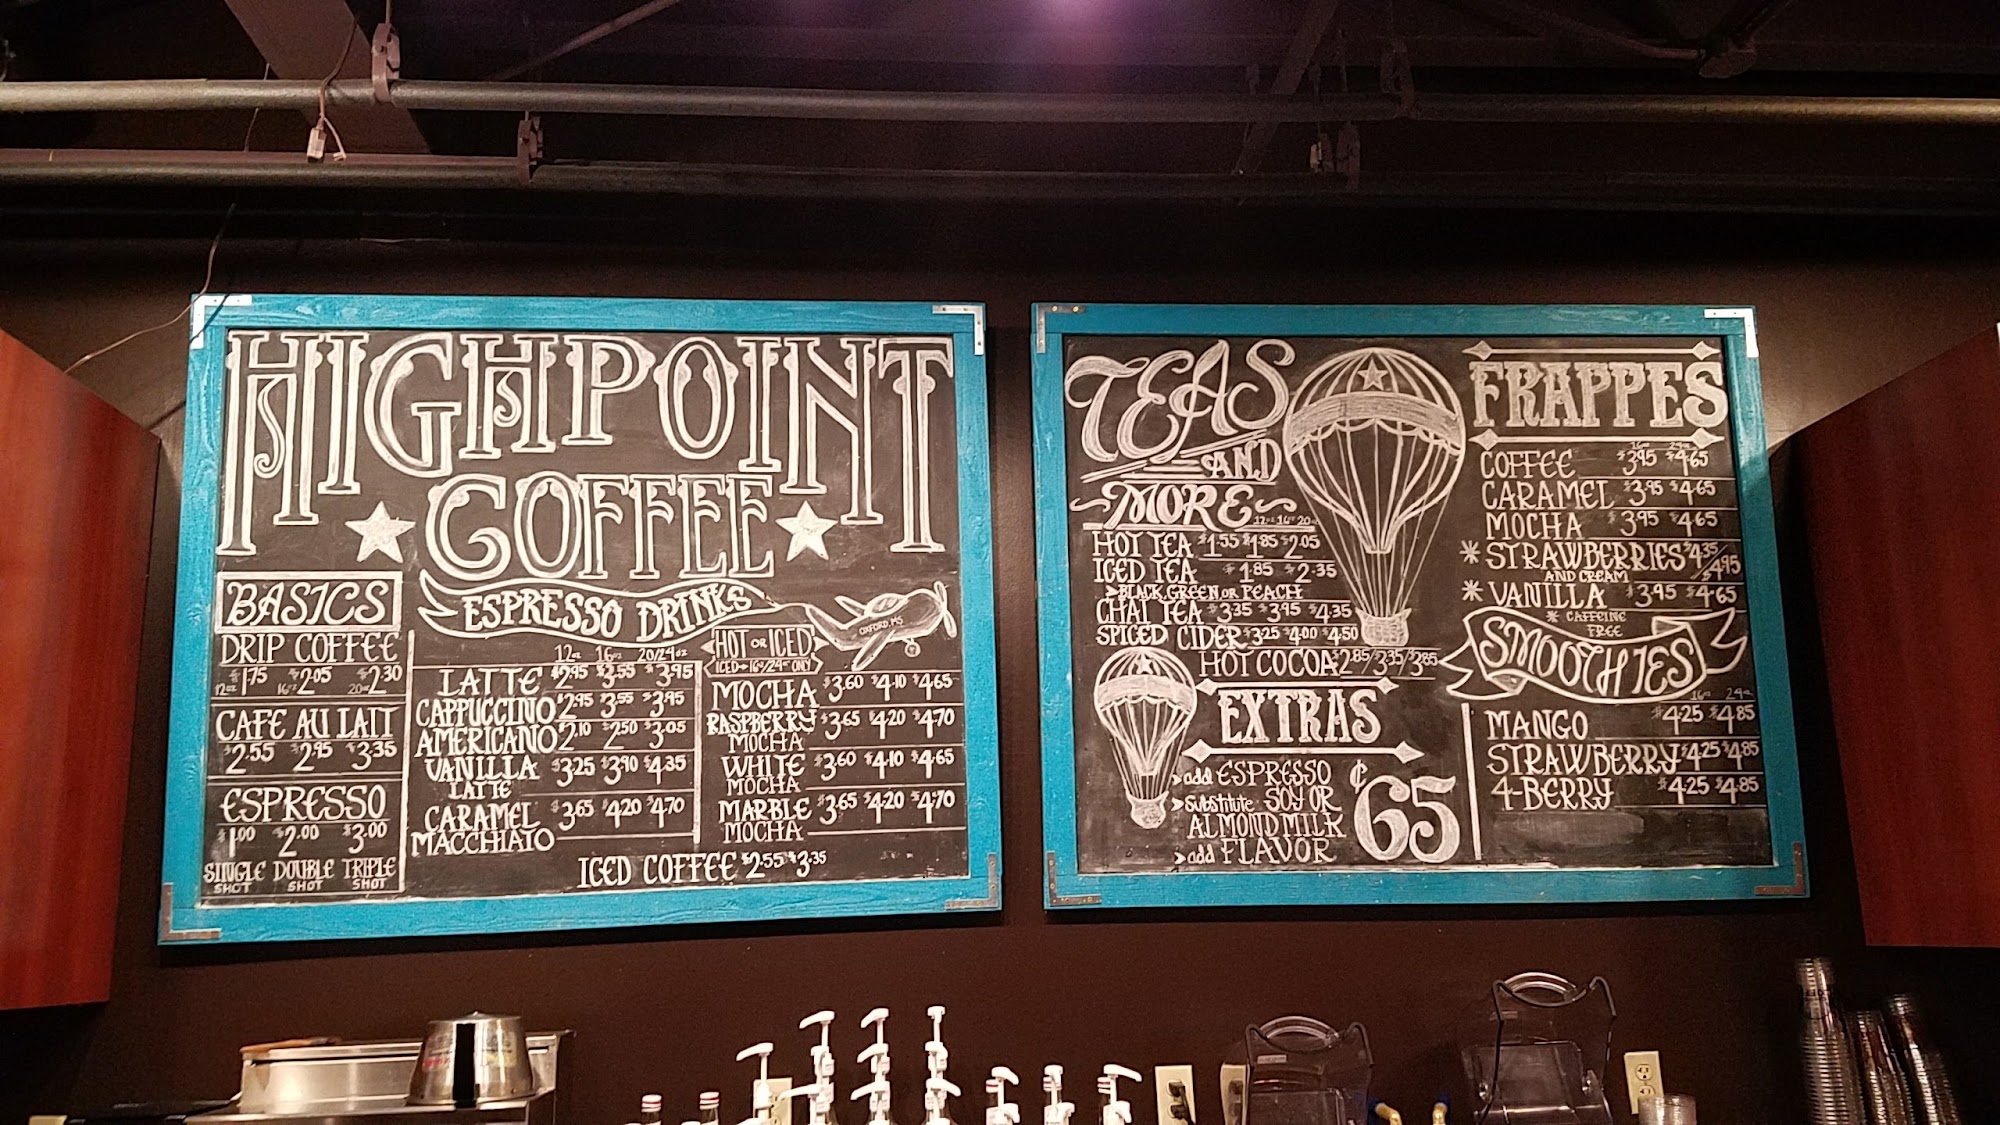 HIGHPOINT
COFFEE
BASICS
DRIP COFFEE
12oz $1.75 16oz $2.05 20oz $2.30
CAFE AU LAIT
$2.55 $2.95 $3.35
ESPRESSO
$1.00 $2.00 $3.00
SINGLE DOUBLE TRIPLE
SHOT SHOT SHOT
ESPRESSO DRINKS
OXFORD, MS
12oz 16oz 20/24oz
LATTE $2.95 $3.55 $3.95
CAPPUCCINO $2.95 $3.55 $3.95
AMERICANO $2.10 $2.50 $3.05
VANILLA $3.25 $3.90 $4.35
LATTE
CARAMEL $3.65 $4.20 $4.70
MACCHIATO
HOT OR ICED
ICED 16oz/24oz ONLY
MOCHA $3.60 $4.10 $4.65
RASPBERRY $3.65 $4.20 $4.70
MOCHA
WHITE $3.60 $4.10 $4.65
MOCHA
MARBLE $3.65 $4.20 $4.70
MOCHA
ICED COFFEE $2.55 $3.35
TEAS
AND
MORE
12oz 16oz 20oz
HOT TEA $1.55 $1.85 $2.05
ICED TEA $1.85 $2.35
>BLACK, GREEN, OR PEACH
CHAI TEA $3.35 $3.95 $4.35
SPICED CIDER $3.25 $4.00 $4.50
HOT COCOA $2.85/$3.35/$3.85
EXTRAS
>add ESPRESSO
>substitute SOY OR
ALMOND MILK
>add FLAVOR
¢65
FRAPPES
16oz 24oz
COFFEE $3.95 $4.65
CARAMEL $3.95 $4.65
MOCHA $3.95 $4.65
* STRAWBERRIES $4.35/$4.95
AND CREAM
* VANILLA $3.95 $4.65
* CAFFEINE
FREE
SMOOTHIES
16oz 24oz
MANGO $4.25 $4.85
STRAWBERRY $4.25 $4.85
4-BERRY $4.25 $4.85